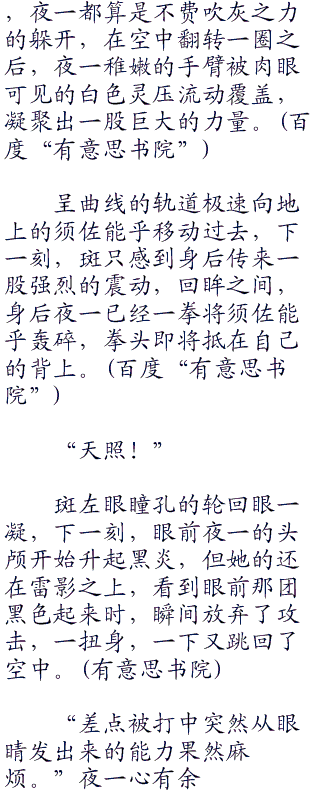 ，夜一都算是不费吹灰之力
的躲开，在空中翻转一圈之
后，夜一稚嫩的手臂被肉眼
可见的白色灵压流动覆盖，
凝聚出一股巨大的力量。(百
度“有意思书院”)
呈曲线的轨道极速向地
上的须佐能乎移动过去，下
一刻，斑只感到身后传来一
股强烈的震动，回眸之间，
身后夜一已经一拳将须佐能
乎轰碎，拳头即将抵在自己
的背上。(百度“有意思书
院”)
“天照！”
斑左眼瞳孔的轮回眼一
凝，下一刻，眼前夜一的头
颅开始升起黑炎，但她的还
在雷影之上，看到眼前那团
黑色起来时，瞬间放弃了攻
击，一扭身，一下又跳回了
空中。(有意思书院)
“差点被打中突然从眼
睛发出来的能力果然麻
烦。”夜一心有余